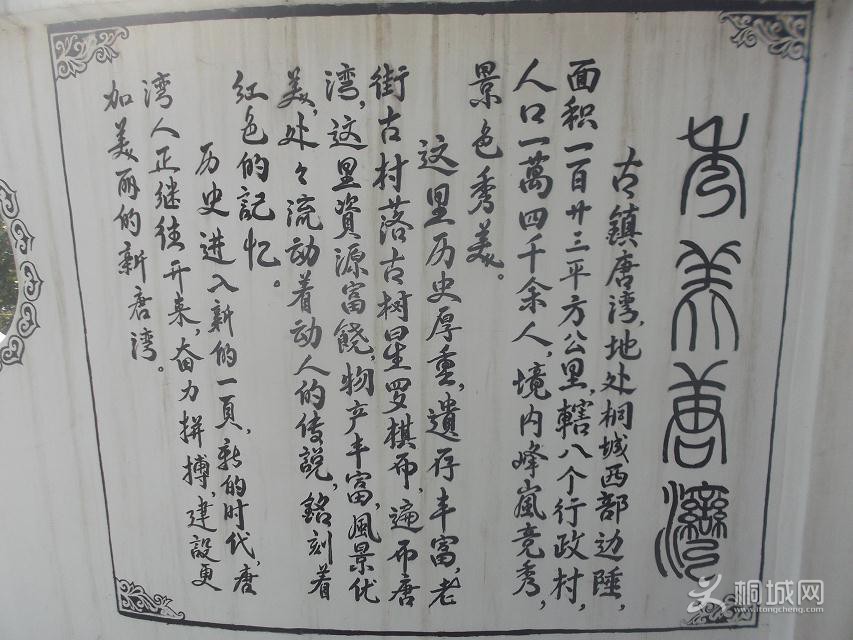 秀美唐灣
古鎮唐湾,地处桐城西部边陲,
面积一百廿三平方公里,轄八个行政村,
人口一萬四千余人,境内峰嵐竞秀,
景色秀美。
这里历史厚重,遺存丰富,老
街古村落古树星罗棋布,遍布唐
湾,这里資源富饒,物产丰富,風景优
美,处々流动着动人的传說,銘刻着
红色的記忆。
历史进入新的一頁,新的时代,唐
湾人正继往开来,奋力拼搏,建設更
加美丽的新唐湾。
桐城网
www.itongcheng.com